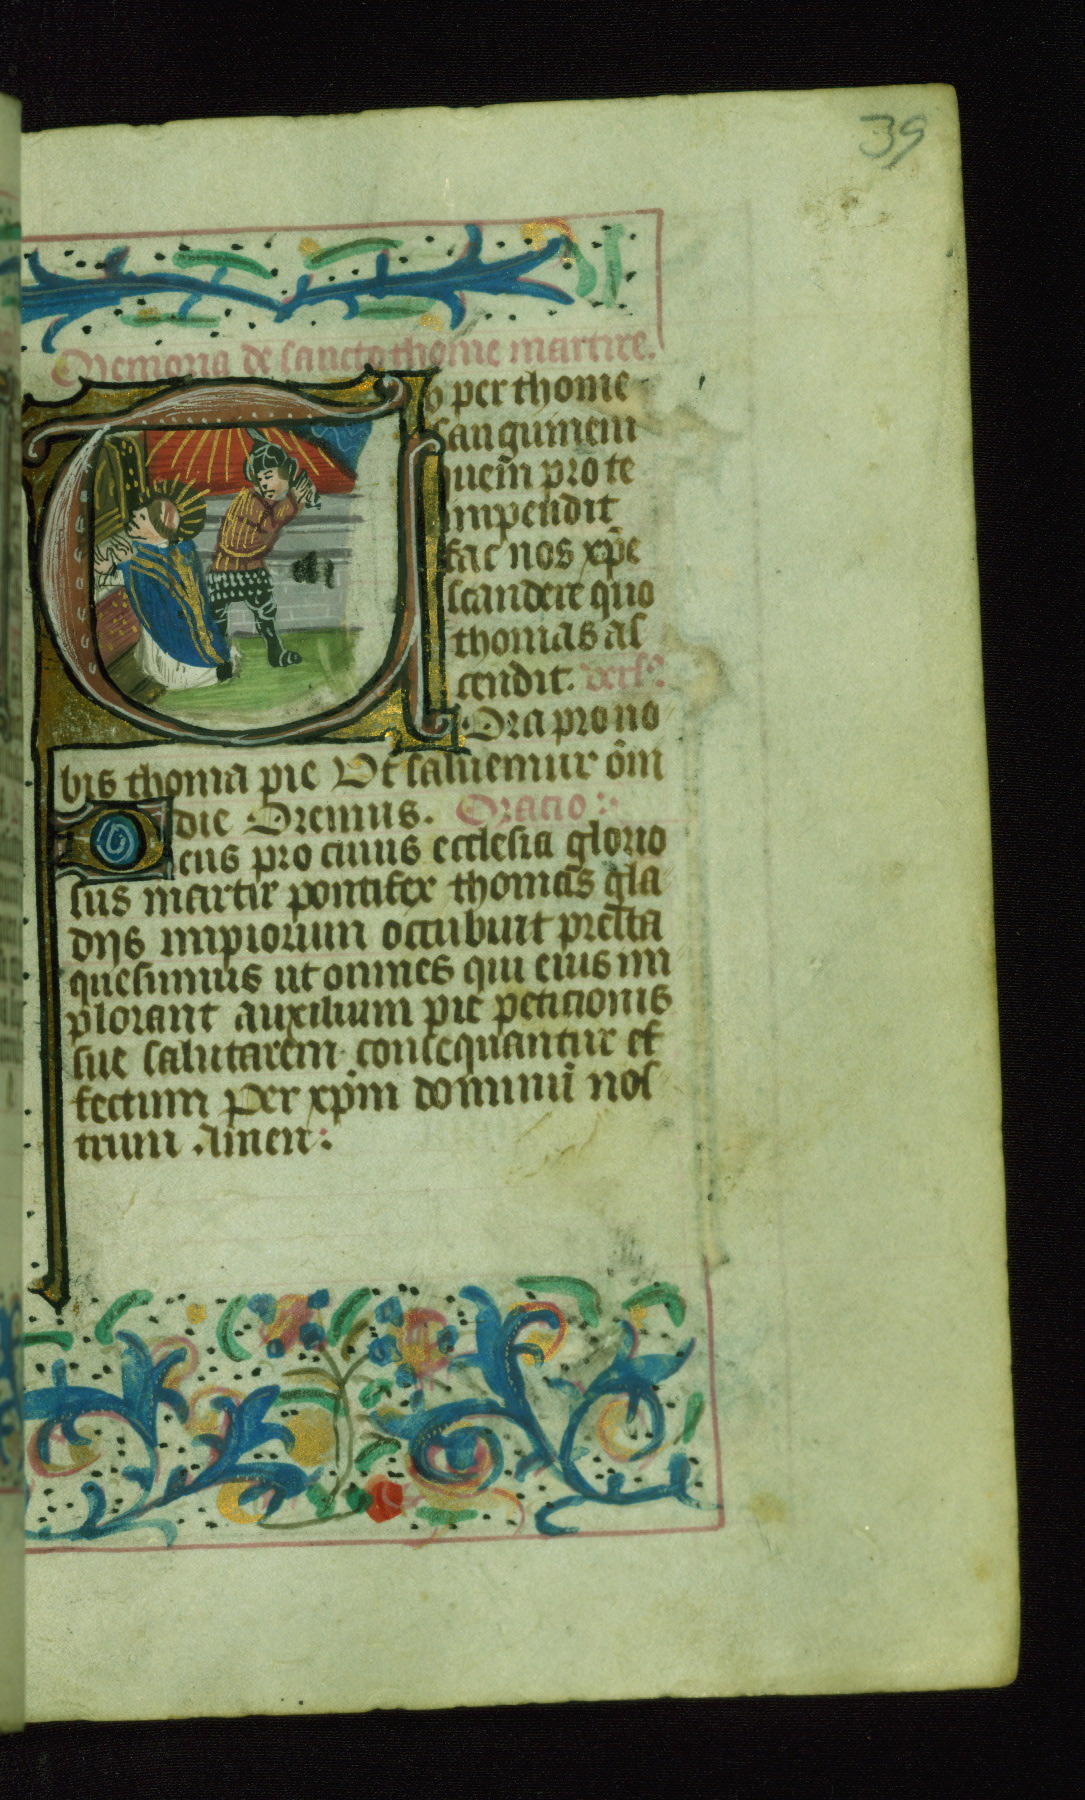 39
Memoria de sancto thome martire.
Tu per thome
sanguinem
quem̄ pro te
impendit
fac nos xp̄e
scandere quo
thomas as
cendit. vers9:
Ora pro no
bis thoma pie Ut saluemur om̄i
die Oremus. Oracio:
Deus pro cuius ecclesia glorio
sus martir pontifex thomas gla
dijs impiorum occubuit presta
quesumus ut omnes qui eius im
plorant auxilium pie peticionis
sue salutarem consequantur ef
fectum Per xp̄m dominū nos
trum Amen: